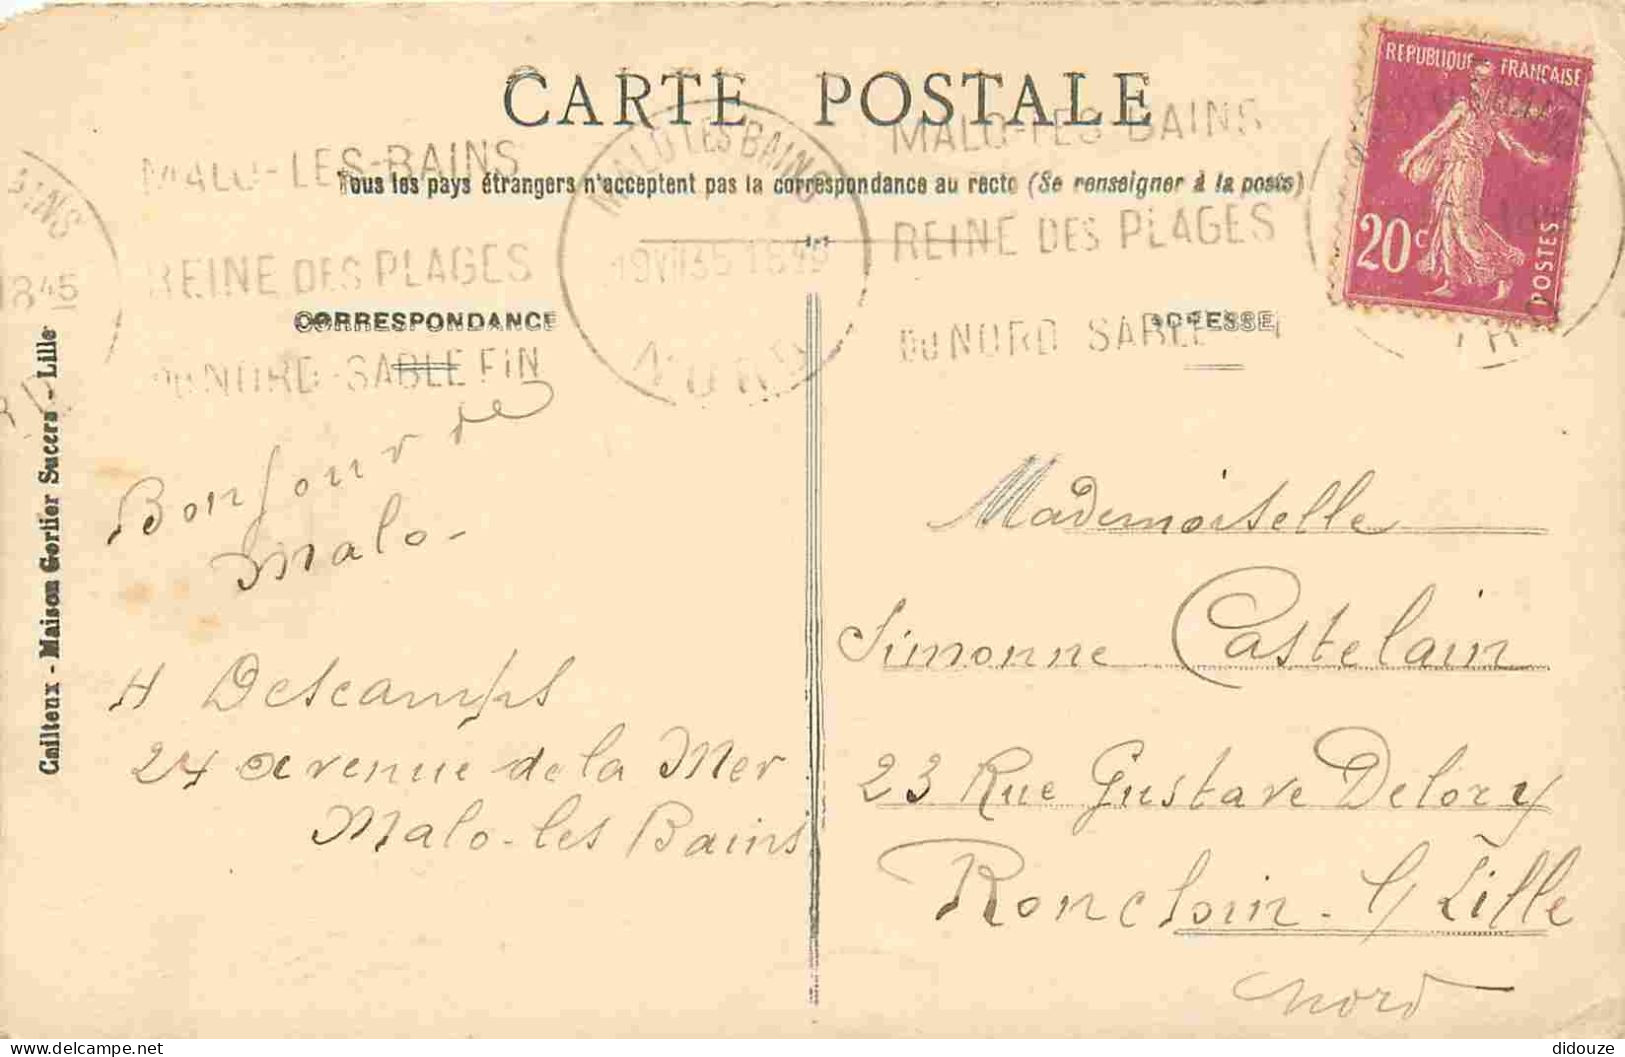 CARTE POSTALE
Tous les pays étrangers n'acceptent pas la correspondance au recto (Se renseigner à la poste)
REPUBLIQUE FRANÇAISE
20c
POSTES
MALO-LES-BAINS
REINE DES PLAGES
DU NORD-SABLE FIN
MALO LES BAINS
19 VII 35 1845
NORD
MALO-LES-BAINS
REINE DES PLAGES
DU NORD SABLE
AINS
1845
CORRESPONDANCE
ADRESSE
Cailteux - Maison Gorlier Succrs - Lille
Bonjour de
Malo-
H Descamps
24 avenue de la Mer
Malo-les Bains
Mademoiselle
Simonne Castelain
23 Rue Gustave Delory
Ronchin - s/ Lille
Nord
didouze